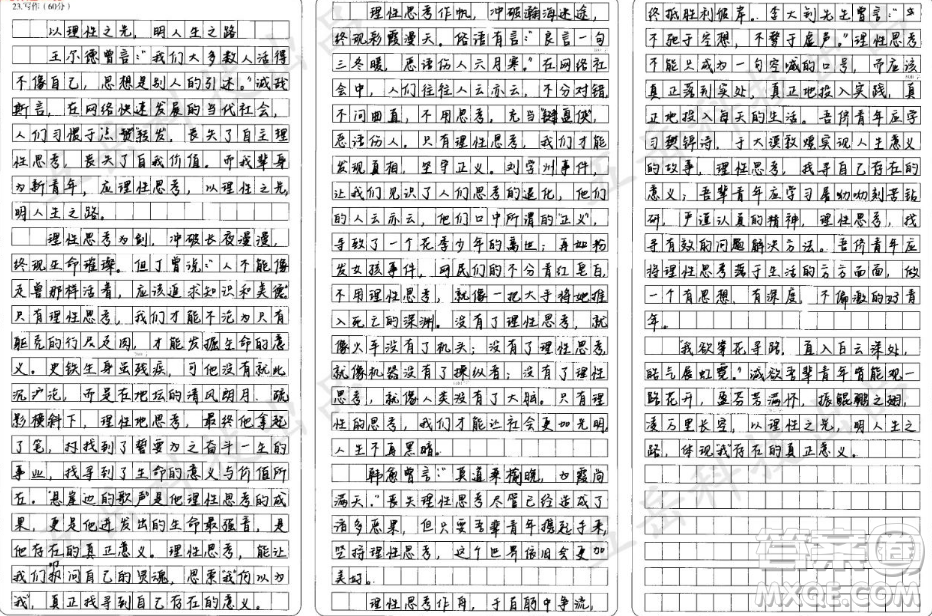 23.写作(60分)
以理性之光，明人生之路
王尔德曾言："我们大多数人活得
不像自己，思想是别人的引述。"诚哉
斯言，在网络快速发展的当代社会，
人们习惯于点赞转发，丧失了自主理
性思考，丧失了自我价值。而我辈身
为新青年，应理性思考，以理性之光
明人生之路。
理性思考为剑，冲破长夜漫漫，
终现生命璀璨。但丁曾说："人不能像
走兽那样活着，应该追求知识和美德"
只有理性思考，我们才能不沦为只有
躯壳的行尸走肉，才能发掘生命的意
义。史铁生身虽残疾，可他没有就此
沉沦，而是在地坛的清风朗月，疏
影横斜下，理性地思考，最终他拿起
了笔，找到了誓要为之奋斗一生的
事业，找寻到了生命的意义与价值所
在。"悬崖边的歌声"是他理性思考的成
果，更是他迸发出的生命最强音，是
他存在的真正意义。理性思考，能让
我们叩问自己的灵魂，思索"我何以为
我"，真正找寻到自己存在的意义。
理性思考作帆，冲破瀚海迷途，
终现彩霞漫天。俗语有言："良言一句
三冬暖，恶语伤人六月寒。"在网络社
会中，人们往往人云亦云，不分对错，
不问曲直，不用思考，充当"键盘侠"，
恶语伤人。只有理性思考，我们才能
发现真相，坚守正义。刘学州事件，
让我们见识了人们思考的退化，他们
的人云亦云，他们口中所谓的"正义"，
导致了一个花季少年的离世；再如粉
发女孩事件，网民们的不分青红皂白，
不用理性思考，就像一把大手将她推
入死亡的深渊。没有了理性思考，就
像火车没有了机头；没有了理性思考，
就像机器没有了操纵者；没有了理性
思考，就像人类没有了大脑。只有理
性的思考，我们才能让社会更加光明，
人生不再黑暗。
韩愈曾言："莫道桑榆晚，为霞尚
满天。"丧失理性思考尽管已经造成了
诸多恶果，但只要吾辈青年携起手来，
坚持理性思考，这个世界依旧会更加
美好。
理性思考作舟，于百舸中争流，
终抵胜利彼岸。李大钊先生曾言："
不驰于空想，不骛于虚声。"理性思考
不能只成为一句空喊的口号，而应该
真正落到实处，真正地投入实践，真
正地投入每天的生活。吾侪青年应学
习樊锦诗，于大漠敦煌实现人生意义
的故事，理性思考，找寻自己存在的
意义；吾辈青年应学习屠呦呦刻苦钻
研，严谨认真的精神，理性思考，找
寻有效的问题解决方法。吾侪青年应
将理性思考落于生活的方方面面，做
一个有思想，有深度，不偏激的好青
年。
"我欲穿花寻路，直入白云深处，
皓气展虹霓。"诚欲吾辈青年皆能观一
路花开，盈芬芳满怀，振鲲鹏之翅，
凌万里长空，以理性之光，明人生之
路，体现"我"存在的真正意义。
答案圈
MXQE.COM